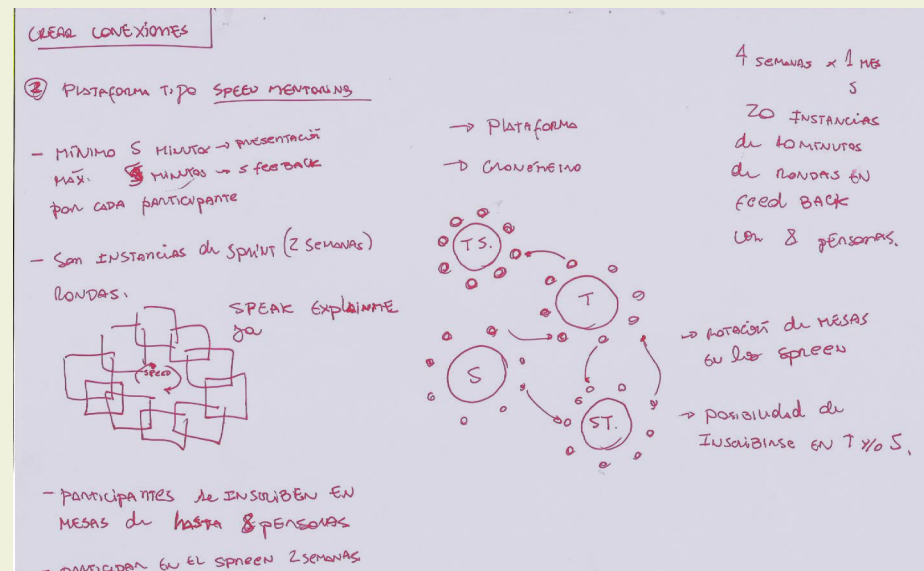 CREAR CONEXIONES
2 PLATAFORMA TIPO SPEED MENTORING
- MÍNIMO 5 MINUTOS → PRESENTACIÓN
MÁX. 5 MINUTOS → 5 FEEBACK
POR CADA PARTICIPANTE
- SON INSTANCIAS de SPRINT (2 SEMANAS)
RONDAS.
SPEAK EXPLAINME
ya
SPEED
- PARTICIPANTES se INSCRIBEN EN
MESAS de hASTA 8 PERSONAS
- PARTICIPAR EN EL SPREEN 2 SEMANAS
→ PLATAFORMA
→ CRONÓMETRO
TS.
T
S
ST.
4 SEMANAS x 1 MES
S
20 INSTANCIAS
de 40 MINUTOS
de RONDAS EN
FEED BACK
CON 8 PERSONAS.
→ ROTACIÓN de MESAS
EN los SPREEN
→ POSIBILIDAD de
INSCRIBIRSE EN T Y/O S.